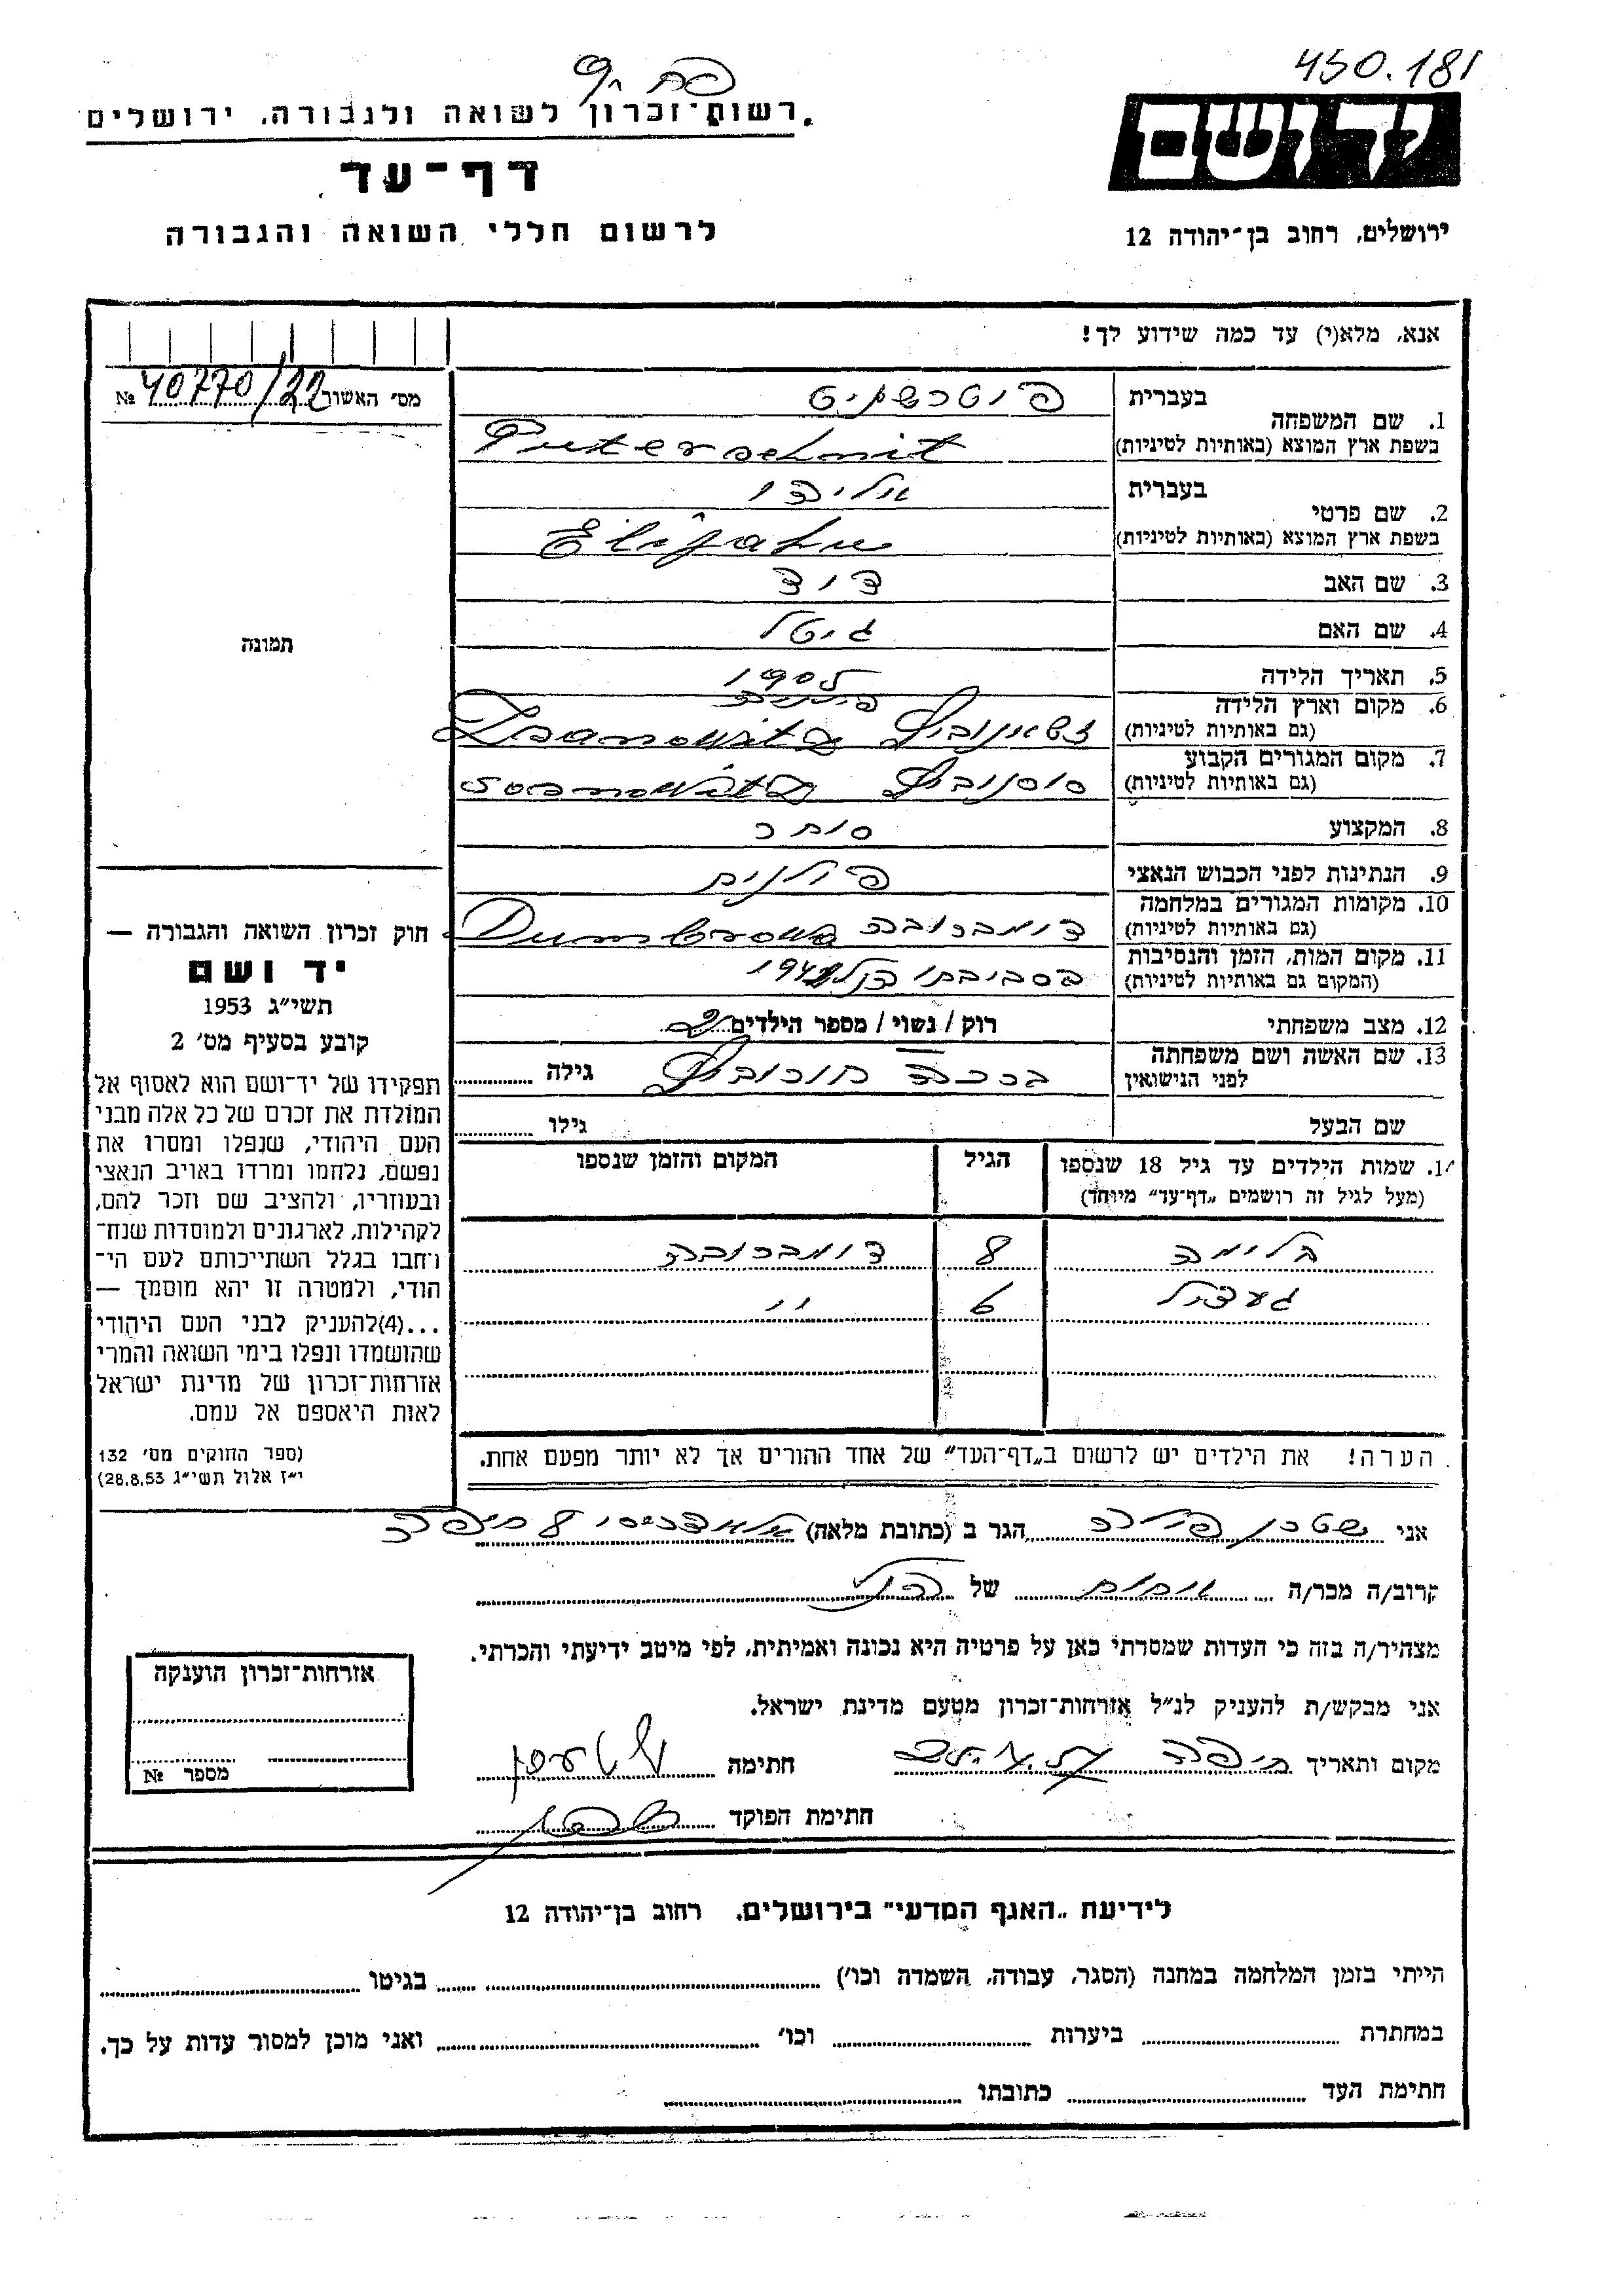 450.181
ידושם
ירושלים, רחוב בן־יהודה 12
רשות־זכרון לשואה ולגבורה, ירושלים
דף־עד
לרשום חללי השואה והגבורה
אנא, מלא(י) עד כמה שידוע לך!
מס׳ האשור 40770/22 №
תמונה
בעברית פוטרשניט
1. שם המשפחה
בשפת ארץ המוצא (באותיות לטיניות) Puterschnit
בעברית אליהו
2. שם פרטי
בשפת ארץ המוצא (באותיות לטיניות) Elijahu
3. שם האב דוד
4. שם האם גיטל
5. תאריך הלידה 1905
6. מקום וארץ הלידה פולניה
(גם באותיות לטיניות)
7. מקום המגורים הקבוע
(גם באותיות לטיניות) סוסנוביץ Sosnowitz
8. המקצוע סוחר
9. הנתינות לפני הכבוש הנאצי פולנית
10. מקומות המגורים במלחמה
(גם באותיות לטיניות) דומברובה Dumbrowa
11. מקום המות, הזמן והנסיבות
(המקום גם באותיות לטיניות)
12. מצב משפחתי רוק / נשוי / מספר הילדים 2
13. שם האשה ושם משפחתה
לפני הנישואין ברכה גילה
שם הבעל גילו
14. שמות הילדים עד גיל 18 שנספו הגיל המקום והזמן שנספו
(מעל לגיל זה רושמים „דף־עד״ מיוחד)
בלימה 8 דומברובה
געציל 6 ״
הערה! את הילדים יש לרשום ב„דף־העד״ של אחד ההורים אך לא יותר מפעם אחת.
חוק זכרון השואה והגבורה —
יד ושם
תשי״ג 1953
קובע בסעיף מס׳ 2
תפקידו של יד־ושם הוא לאסוף אל
המולדת את זכרם של כל אלה מבני
העם היהודי, שנפלו ומסרו את
נפשם, נלחמו ומרדו באויב הנאצי
ובעוזריו, ולהציב שם וזכר להם,
לקהילות, לארגונים ולמוסדות שנח־
רחבו בגלל השתייכותם לעם הי־
הודי, ולמטרה זו יהא מוסמך —
...(4)להעניק לבני העם היהודי
שהושמדו ונפלו בימי השואה והמרי
אזרחות־זכרון של מדינת ישראל
לאות היאספם אל עמם.
(ספר החוקים מס׳ 132
י״ז אלול תשי״ג 28.8.53)
אני שטרן הגר ב (כתובת מלאה) 8 חיפה
קרוב/ה מכר/ה של הנ״ל
מצהיר/ה בזה כי העדות שמסרתי כאן על פרטיה היא נכונה ואמיתית, לפי מיטב ידיעתי והכרתי.
אני מבקש/ת להעניק לנ״ל אזרחות־זכרון מטעם מדינת ישראל.
מקום ותאריך חיפה חתימה
חתימת הפוקד
אזרחות־זכרון הוענקה
מספר №
לידיעת „האגף המדעי״ בירושלים, רחוב בן־יהודה 12
הייתי בזמן המלחמה במחנה (הסגר, עבודה, השמדה וכו׳) בגיטו
במחתרת ביערות וכו׳ ואני מוכן למסור עדות על כך.
חתימת העד כתובתו